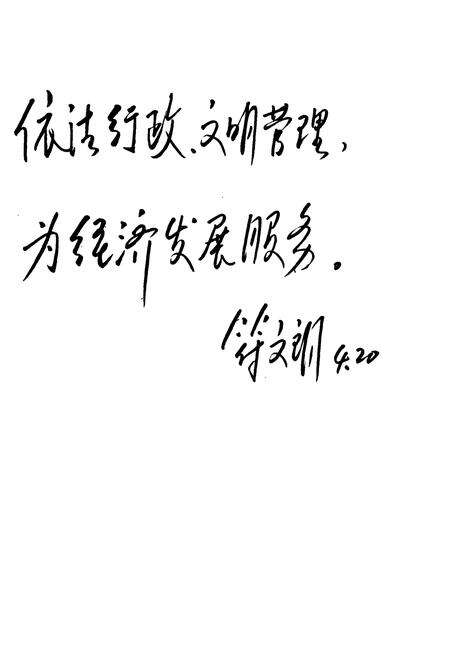 依法行政、文明管理，
为经济发展服务。
符文朗 4.20